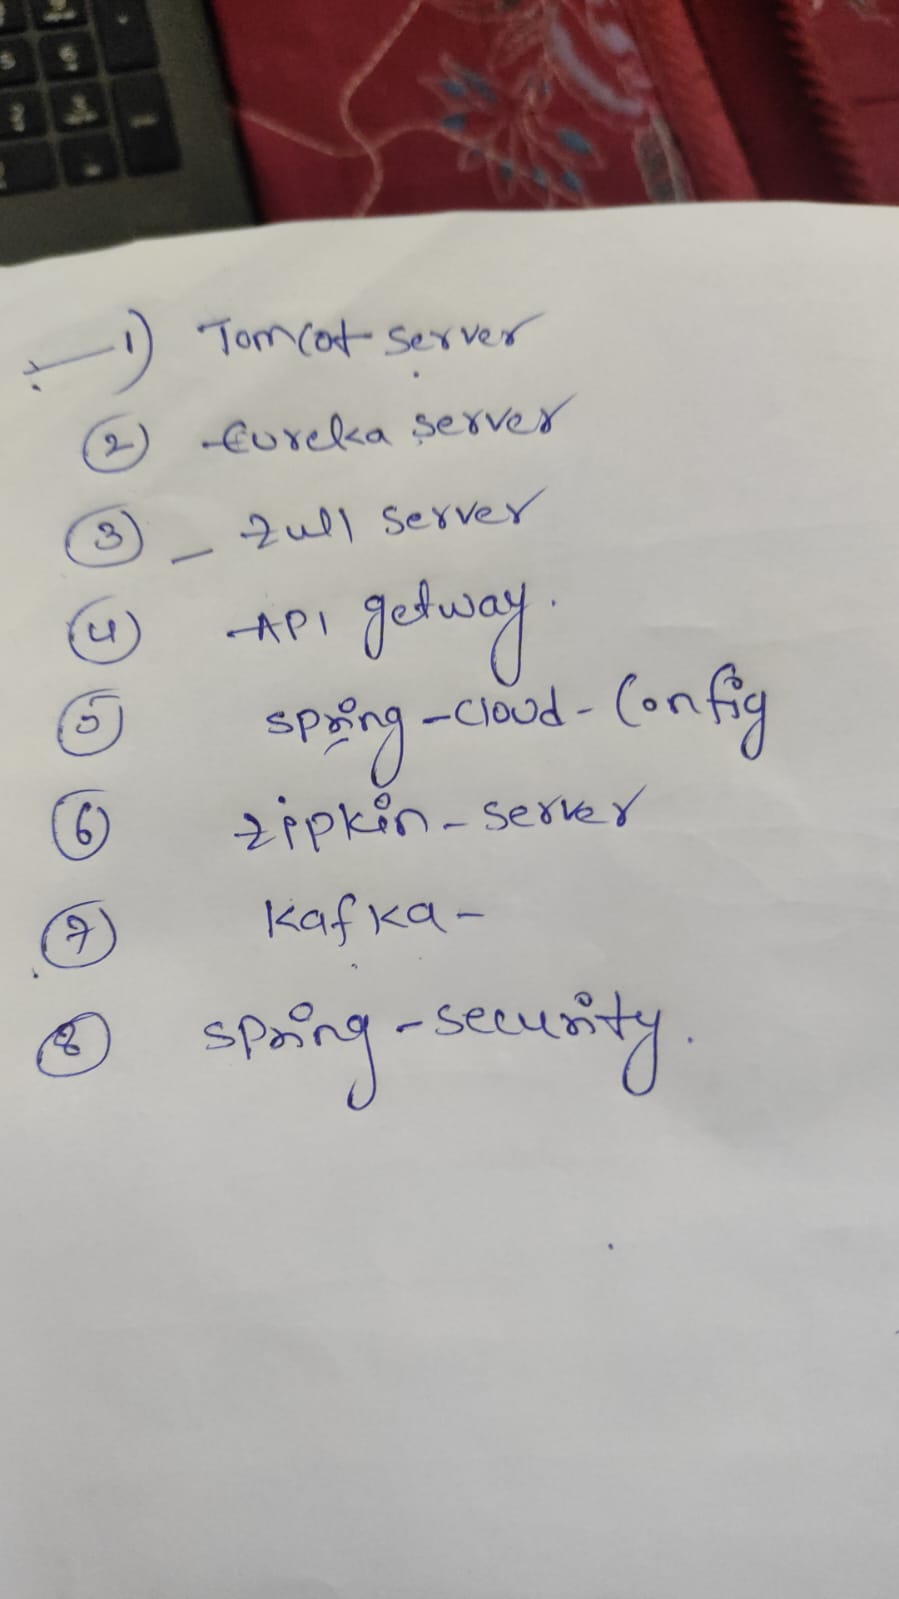 1) Tomcat server
2 Eureka server
3 - zull server
4 API getway.
5 spring-cloud-config
6 zipkin-server
7 kafka-
8 spring-security.